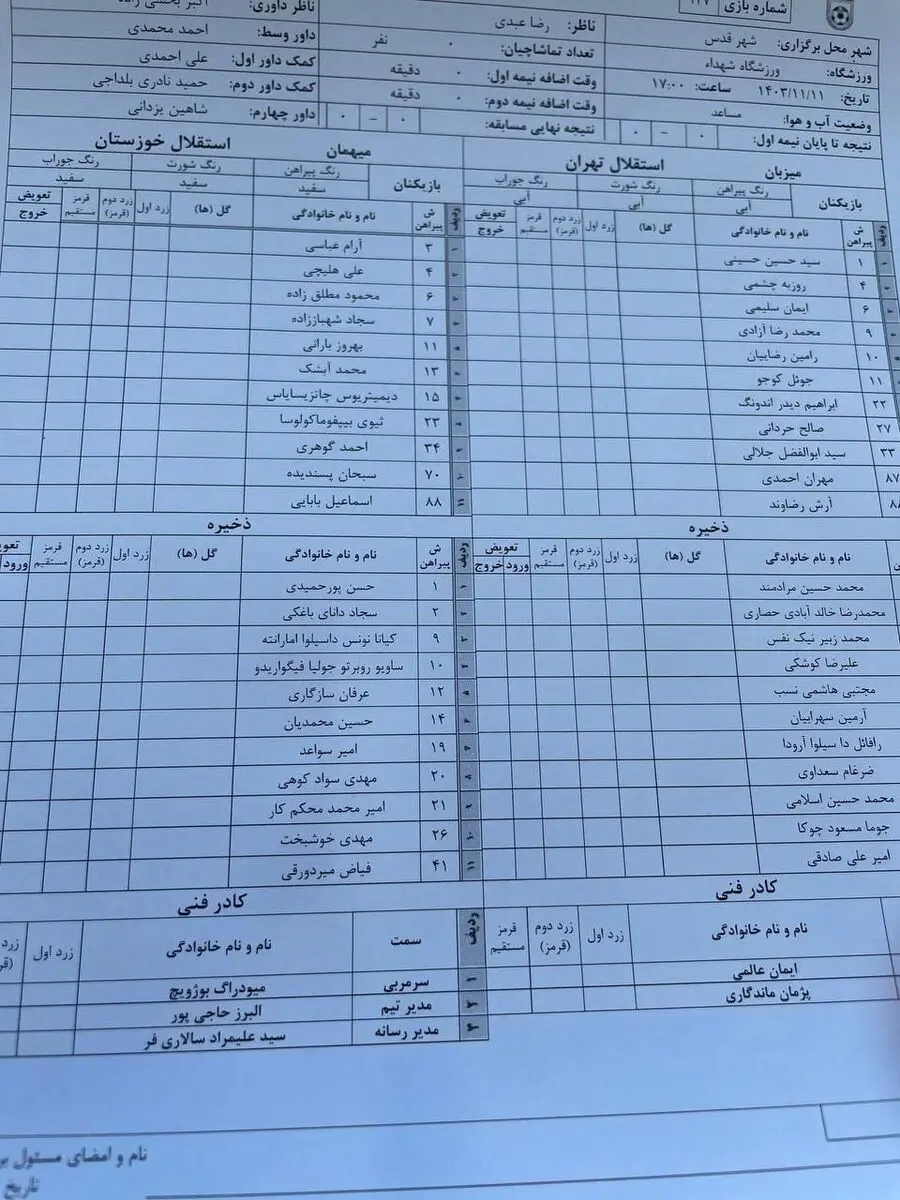 شماره بازی ۱۲۷
شهر محل برگزاری: شهر قدس
ورزشگاه: ورزشگاه شهداء
تاریخ: ۱۴۰۳/۱۱/۱۱ ساعت: ۱۷:۰۰
وضعیت آب و هوا: مساعد
نتیجه تا پایان نیمه اول: ۰ – ۰
ناظر: رضا عبدی
تعداد تماشاچیان: ۰ نفر
وقت اضافه نیمه اول: ۰ دقیقه
وقت اضافه نیمه دوم: ۰ دقیقه
نتیجه نهایی مسابقه: ۰ – ۰
ناظر داوری:
داور وسط: احمد محمدی
کمک داور اول: علی احمدی
کمک داور دوم: حمید نادری بلداجی
داور چهارم: شاهین یزدانی
میزبان استقلال تهران
بازیکنان رنگ پیراهن رنگ شورت رنگ جوراب
آبی آبی آبی
ردیف ش پیراهن نام و نام خانوادگی گل (ها) زرد اول زرد دوم (قرمز) قرمز مستقیم تعویض خروج
۱ سید حسین حسینی
۴ روزبه چشمی
۶ ایمان سلیمی
۹ محمد رضا آزادی
۱۰ رامین رضاییان
۱۱ جوئل کوجو
۲۲ ابراهیم دیدر اندونگ
۲۷ صالح حردانی
۳۳ سید ابوالفضل جلالی
۸۷ مهران احمدی
۸۸ آرش رضاوند
ذخیره
نام و نام خانوادگی گل (ها) زرد اول زرد دوم (قرمز) قرمز مستقیم تعویض ورود خروج
محمد حسین مرادمند
محمدرضا خالد آبادی حصاری
محمد زبیر نیک نفس
علیرضا کوشکی
مجتبی هاشمی نسب
آرمین سهرابیان
رافائل دا سیلوا آرودا
ضرغام سعداوی
محمد حسین اسلامی
جوما مسعود چوکا
امیر علی صادقی
کادر فنی
نام و نام خانوادگی زرد اول زرد دوم (قرمز) قرمز مستقیم
ایمان عالمی
پژمان ماندگاری
میهمان استقلال خوزستان
بازیکنان رنگ پیراهن رنگ شورت رنگ جوراب
سفید سفید سفید
ردیف ش پیراهن نام و نام خانوادگی گل (ها) زرد اول زرد دوم (قرمز) قرمز مستقیم تعویض خروج
۱ ۳ آرام عباسی
۲ ۴ علی هلیچی
۳ ۶ محمود مطلق زاده
۴ ۷ سجاد شهباززاده
۵ ۱۱ بهروز بارانی
۶ ۱۳ محمد آبشک
۷ ۱۵ دیمیتریوس چاتزیسایاس
۸ ۲۳ ثیوی بیپفوماکولوسا
۹ ۳۴ احمد گوهری
۱۰ ۷۰ سبحان پسندیده
۱۱ ۸۸ اسماعیل بابایی
ذخیره
ردیف ش پیراهن نام و نام خانوادگی گل (ها) زرد اول زرد دوم (قرمز) قرمز مستقیم ورود
۱ ۱ حسن پورحمیدی
۲ ۲ سجاد دانای باغکی
۳ ۹ کیاتا نونس داسیلوا امارانته
۴ ۱۰ ساویو روبرتو جولیا فیگواریدو
۵ ۱۲ عرفان سازگاری
۶ ۱۴ حسین محمدیان
۷ ۱۹ امیر سواعد
۸ ۲۰ مهدی سواد کوهی
۹ ۲۱ امیر محمد محکم کار
۱۰ ۲۶ مهدی خوشبخت
۱۱ ۴۱ فیاض میردورقی
کادر فنی
ردیف سمت نام و نام خانوادگی زرد اول زرد
۱ سرمربی میودراگ بوژوویچ
۲ مدیر تیم البرز حاجی پور
۳ مدیر رسانه سید علیمراد سالاری فر
نام و امضای مسئول
تاریخ